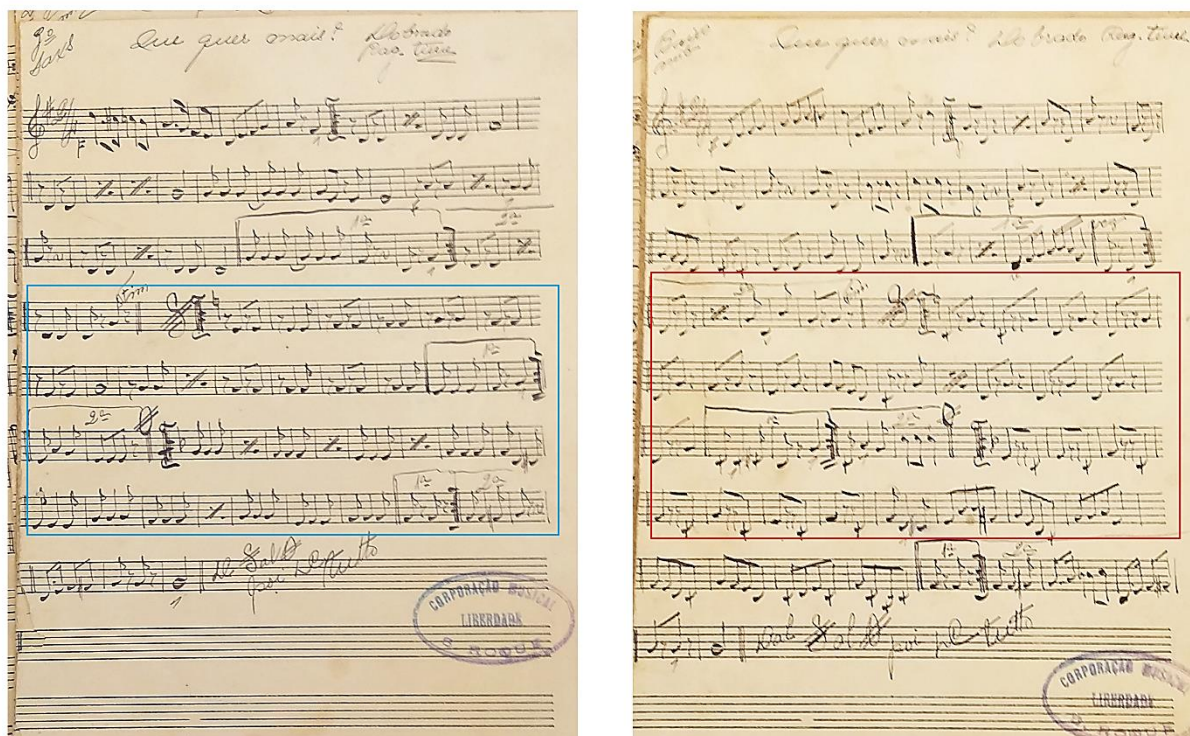 3ª
Saxs
Que quer mais? Dobrado
Rag. time
1ª
2ª
Fim
1ª
2ª
1ª
2ª
poi D.C. tutto
CORPORAÇÃO MUSICAL
LIBERDADE
S. ROQUE
Que quer mais? Dobrado Rag. time
1ª
Fim
1ª
2ª
1ª
2ª
Dal
poi D.C. tutto
CORPORAÇÃO MUSICAL
LIBERDADE
S. ROQUE